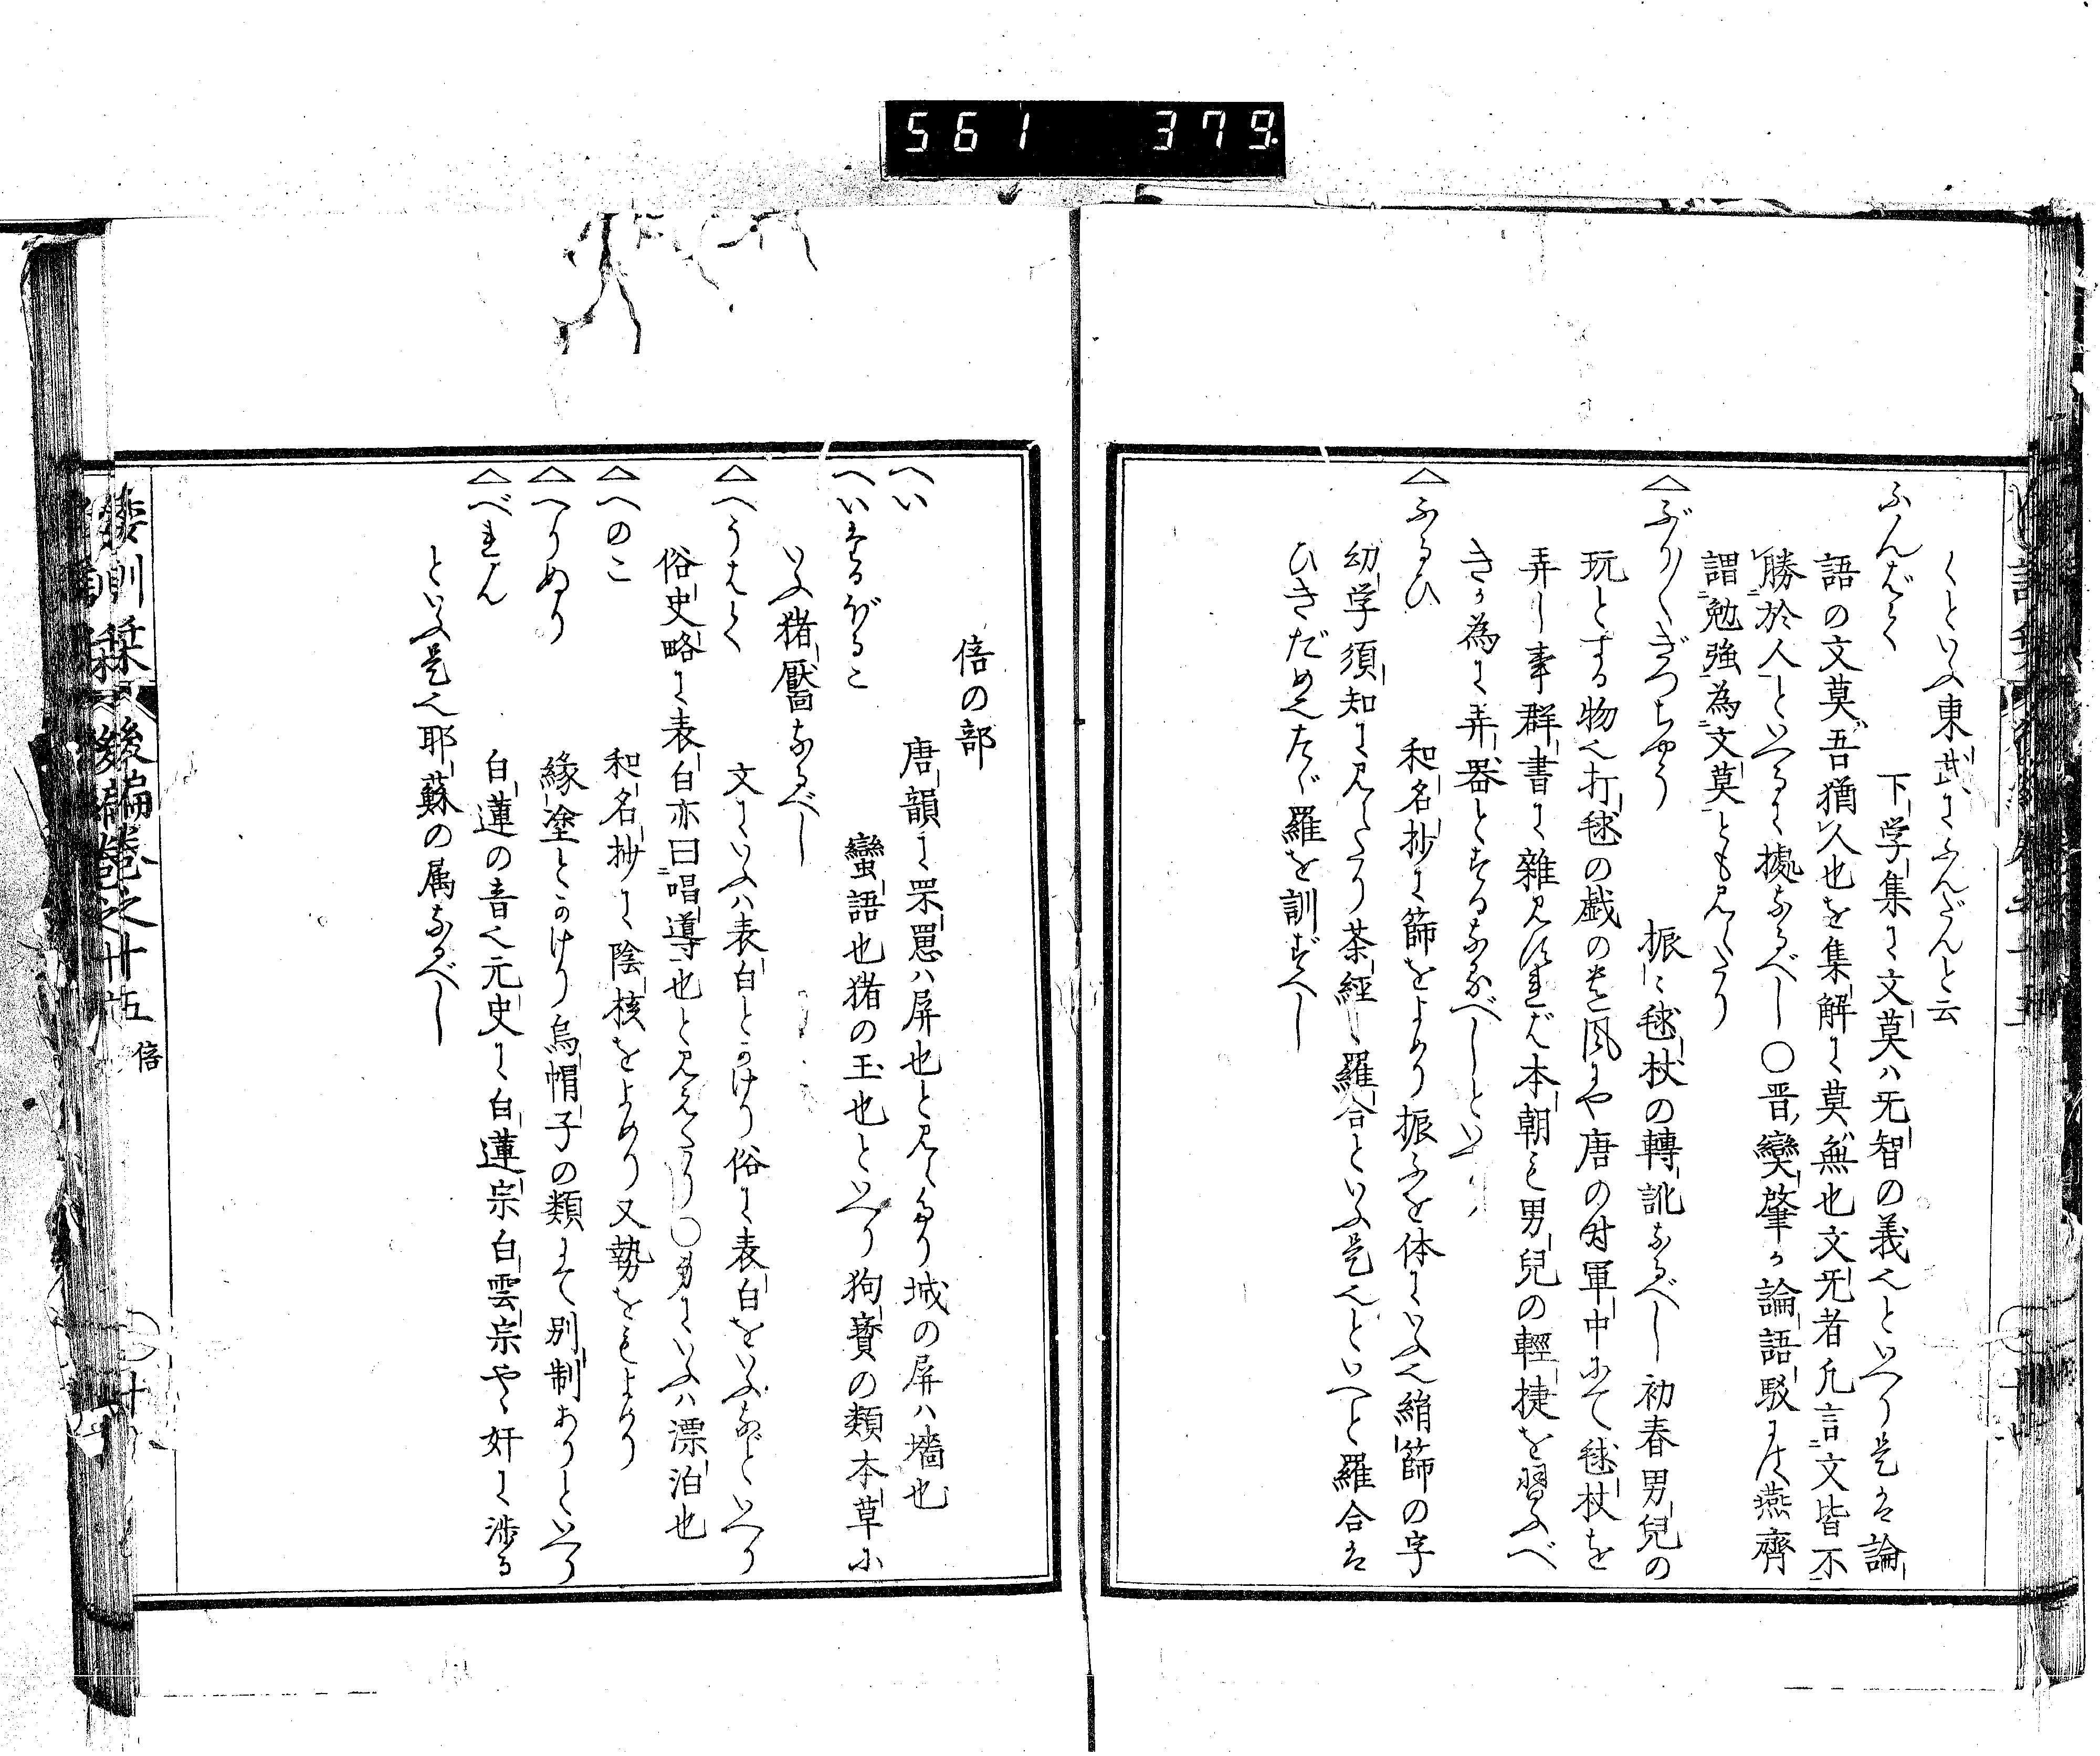 561 379
くといふ東武にふんだんと云
ふんばく 下学集に文莫ハ无智の義也といへり是は論
語の文莫吾猶人也を集解に莫無也文无者凡言文皆不
勝於人といへるに據なるべし〇晋欒肇か論語駁に燕齊
謂勉強為文莫とも見えたり
△ぶり〱ぎつちやう 振々毬杖の轉訛なるべし初春男兒の
玩とする物也打毬の戯の遺風にや唐の時軍中にて毬杖を
弄し事群書に雜見すされば本朝も男兒の輕捷を習ふべ
きか為に弄器とするなるべしといへり
△ふるひ 和名抄に篩をよめり振ふを体にいふ也絹篩の字
幼学須知に見えたり茶經に羅合といふ是也といへと羅合は
ひきだめ也たゞ羅を訓ずへし
倍の部
へい 唐韻に罘罳ハ屏也と見えたり城の屏ハ墻也
へいさるばさるこ 蠻語也猪の玉也といへり狗寳の類本草に
いふ猪靨なるべし
△へうはく 文にいふハ表白とかけり俗に表白をいふなどいへり
俗史略に表白亦曰唱導也と見えたり〇身にいふハ漂泊也
△へのこ 和名抄に陰核をよめり又勢をもよめり
△へりぬり 緣塗とかけり烏帽子の類にて別制ありといへり
△べれん 白蓮の音也元史に白蓮宗白雲宗やゝ奸に渉る
といふ是也耶蘇の属なるべし
倭訓栞後編巻之廿五 倍